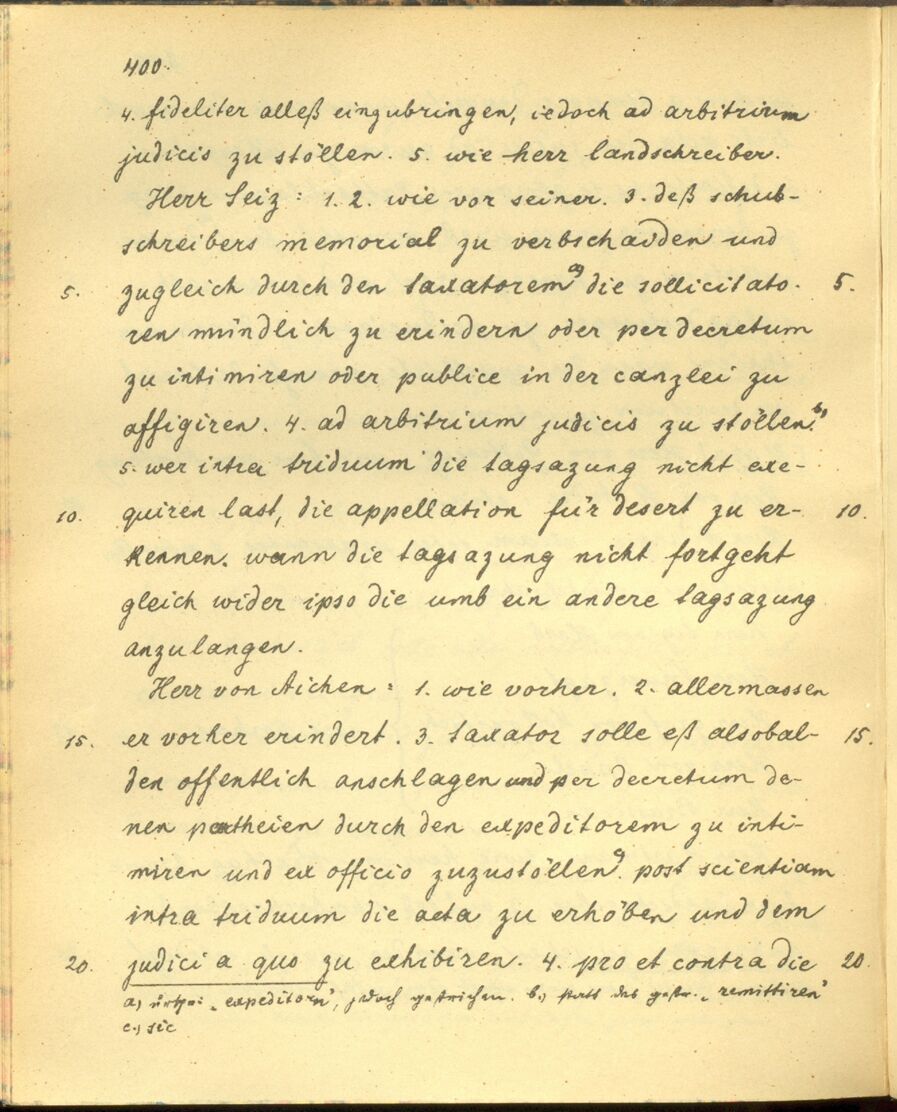 400.
4. fideliter alleß einzubringen, iedoch ad arbitrium
judicis zu stöllen. 5. wie herr landschreiber.
Herr Seiz: 1. 2. wie vor seiner. 3. deß schub-
schreibers memorial zu verbschaiden und
5. zugleich durch den taxatorem a) die sollicitato- 5.
ren mündlich zu erindern oder per decretum
zu intimiren oder publice in der canzlei zu
affigiren. 4. ad arbitrium judicis zu stöllen. b)
5. wer intra triduum die tagsazung nicht exe-
10. quiren last, die appellation für desert zu er- 10.
kennen. wann die tagsazung nicht fortgeht
gleich wider ipso die umb ein andere tagsazung
anzulangen.
Herr von Aichen: 1. wie vorher. 2. allermassen
15. er vorher erindert. 3. taxator solle eß alsobal- 15.
den offentlich anschlagen und per decretum de-
nen partheien durch den expeditorem zu inti-
miren und ex officio zuzustöllen c). post scientiam
intra triduum die acta zu erhöben und dem
20. judici a quo zu exhibiren. 4. pro et contra die 20.
a.) "expeditorn", jedoch gestrichen. b.) statt des gestr. "remittiren"
c.) sic